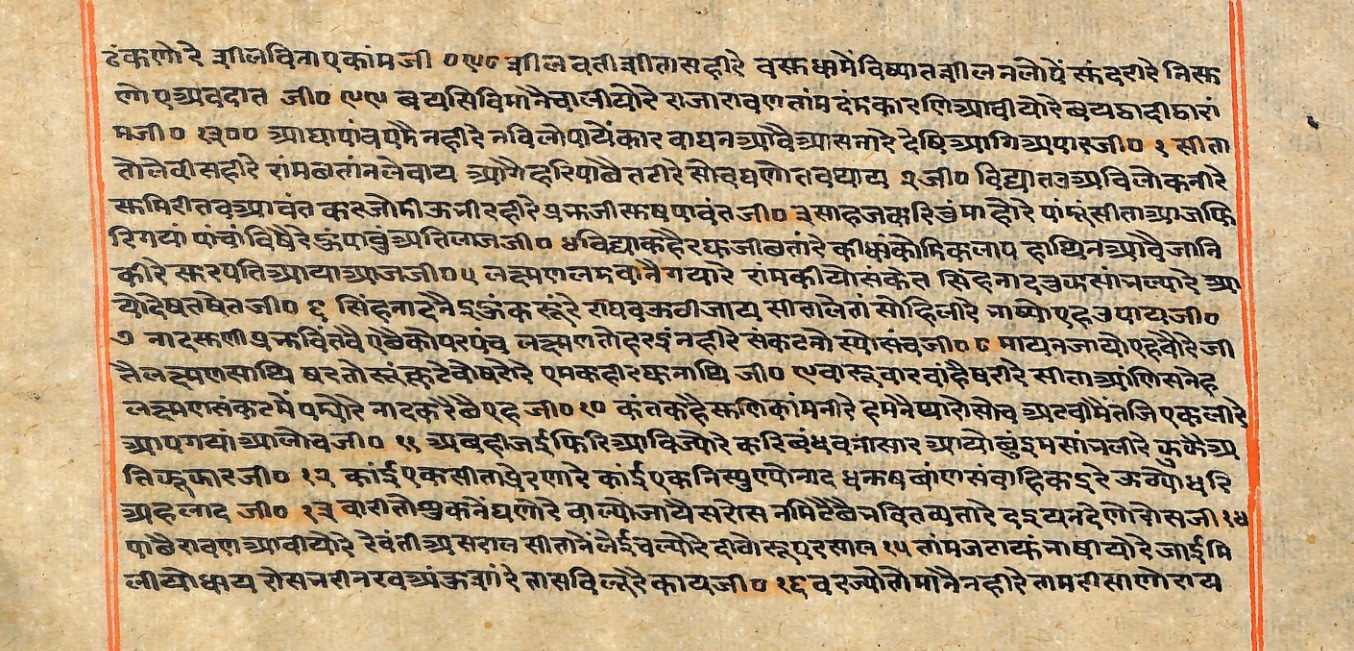 ढंकणो रे शीलविना एकांमजी ०९८ शीलवतीशीता सहीरे वसुधामें विष्यात शील नलोपें सुंदरी रे निसु
णो ए अवदात जी० ९९ बयसिविमानै चालीयो रे राजा रावण तांम दंमकारणि आवीयो रे बयठा दीठा रां
मजी० १३०० आघापांव पमै नही रे नविलोपायें कार वाघन आवै आसनारे देषि आगि अपारजी० १ सीता
तोलेवी सहीरे रांम बतां नलेवाय आगै हरि पाछै तटीरे सोच घणो तव थाय २ जी० विद्या तव अविलोकनी रे
समिरी तव आवंत करजोमी ऊनी रही रे प्रभुजी सुष पावंत जी० ३ साहज करि तुं माहौ रे पांमुं सीता आज फि
रि गयां पांचां विषै रे हुं पावुं अति लाज जी० ४ विद्या कहै रघुजी बतां रे कीधां कोमि कलाप हाथि न आवै जान
की रे सुरपति आया आज जी० ५ लक्ष्मण लमवानै गयो रे रांम कीयो संकेत सिंहनाद तुफ सांनल्यां रे आ
यो देष तषेत जी० ६ सिंहनादनै हुं करूं रे राघव ऊठी जाय सीता लेतां सोहिली रे नाष्यो एह उपाय जी०
७ नाद सुणी प्रभु चिंतवै ए छै को परपंच लक्ष्मण तो हरइं नही रे संकटनो स्यो संच जी० ८ माय न जायो एहवो रे जी
तै लक्ष्मण साथि षरतो सुं कुटेवो षरो रे एम कही रघुनाथि जी० ९ वारूवार वांहै षरी रे सीता आंणि सनेह
लक्ष्मण संकटमें पम्यो रे नाद करै छै एह जी० १० कंत कहै सुणि कांमनी रे हमनै थारो सोच अटवीमें तजि एकली रे
आप गयां आलोच जी० ११ अबही जई फिरि आविज्यो रे करि बंधवनी सार आयो छुं इम सांनली रे कुकै अ
ति कूकार जी० १२ कांई एक सीता प्रेरणा रे कांई एक निसुण्यो नाद धनुष बांण संवाहिकइ रे ऊठ्यो धरि
अहलाद जी० १३ वारीतो शुकनें घणो रे वाल्यो जायै सरोस नमिटै छै नवितव्यता रे दइय न देणो दोस जी १४
पाछै रावण आवीयो रे रेवंती असराल सीतानें लेई चल्यो रे दीवो सूप रसाल १५ तांम जटायु नाषीयो रे जाई मि
लीयो धाय रोस नरी नरव अंकुशां रे तास विलूरै काय जी० १६ वरज्यो तो मानै नही रे तामरीसाणो राय